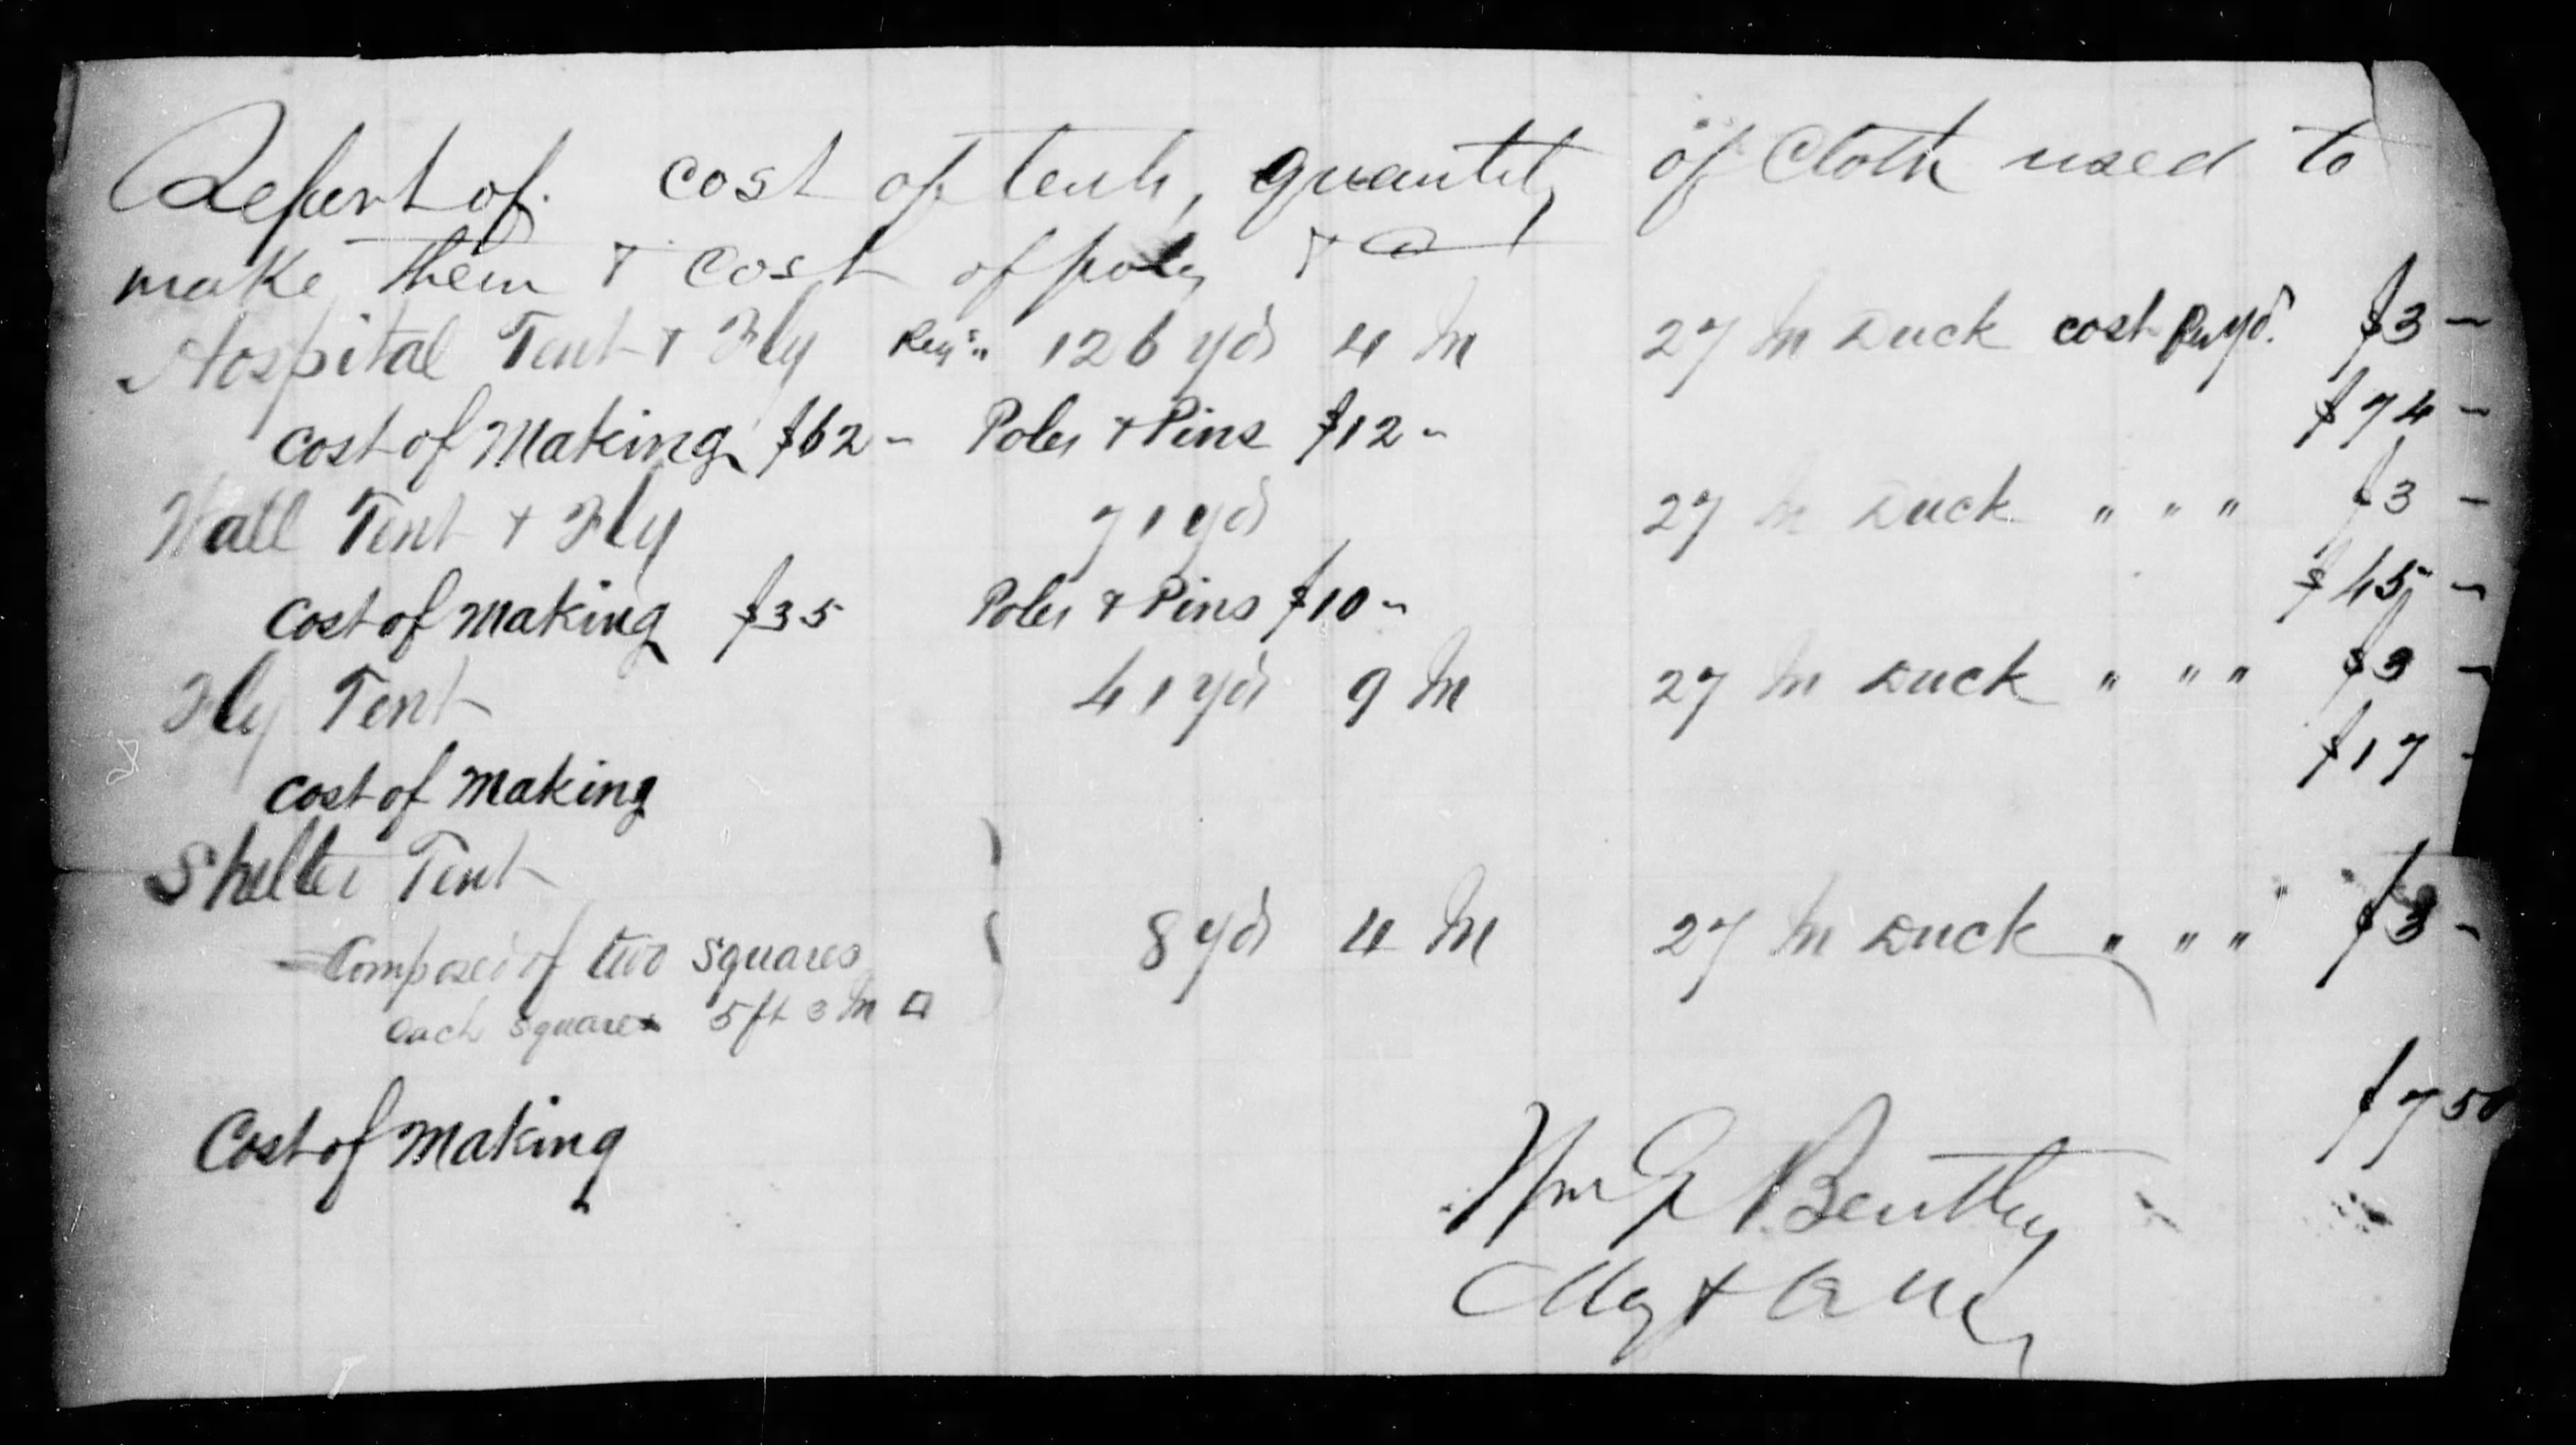 Report of cost of tents, quantity of Cloth used to
make them & cost of poles &c
Hospital Tent & Fly Reqs 126 yds 4 In 27 In Duck cost pr yd. $3 –
cost of Making $62 – Poles & Pins $12 – $74 –
Wall Tent & Fly 71 yds 27 In Duck " " " $3 –
Cost of Making $35 Poles & Pins $10 – $45 –
Fly Tent 41 yds 9 In 27 In Duck " " " $3 –
Cost of Making $17 –
Shelter Tent
Composed of two squares 8 yds 4 In 27 In Duck " " " $3 –
each square 5 ft 3 In □
Cost of Making $7 50
Wm Bentley
Maj &